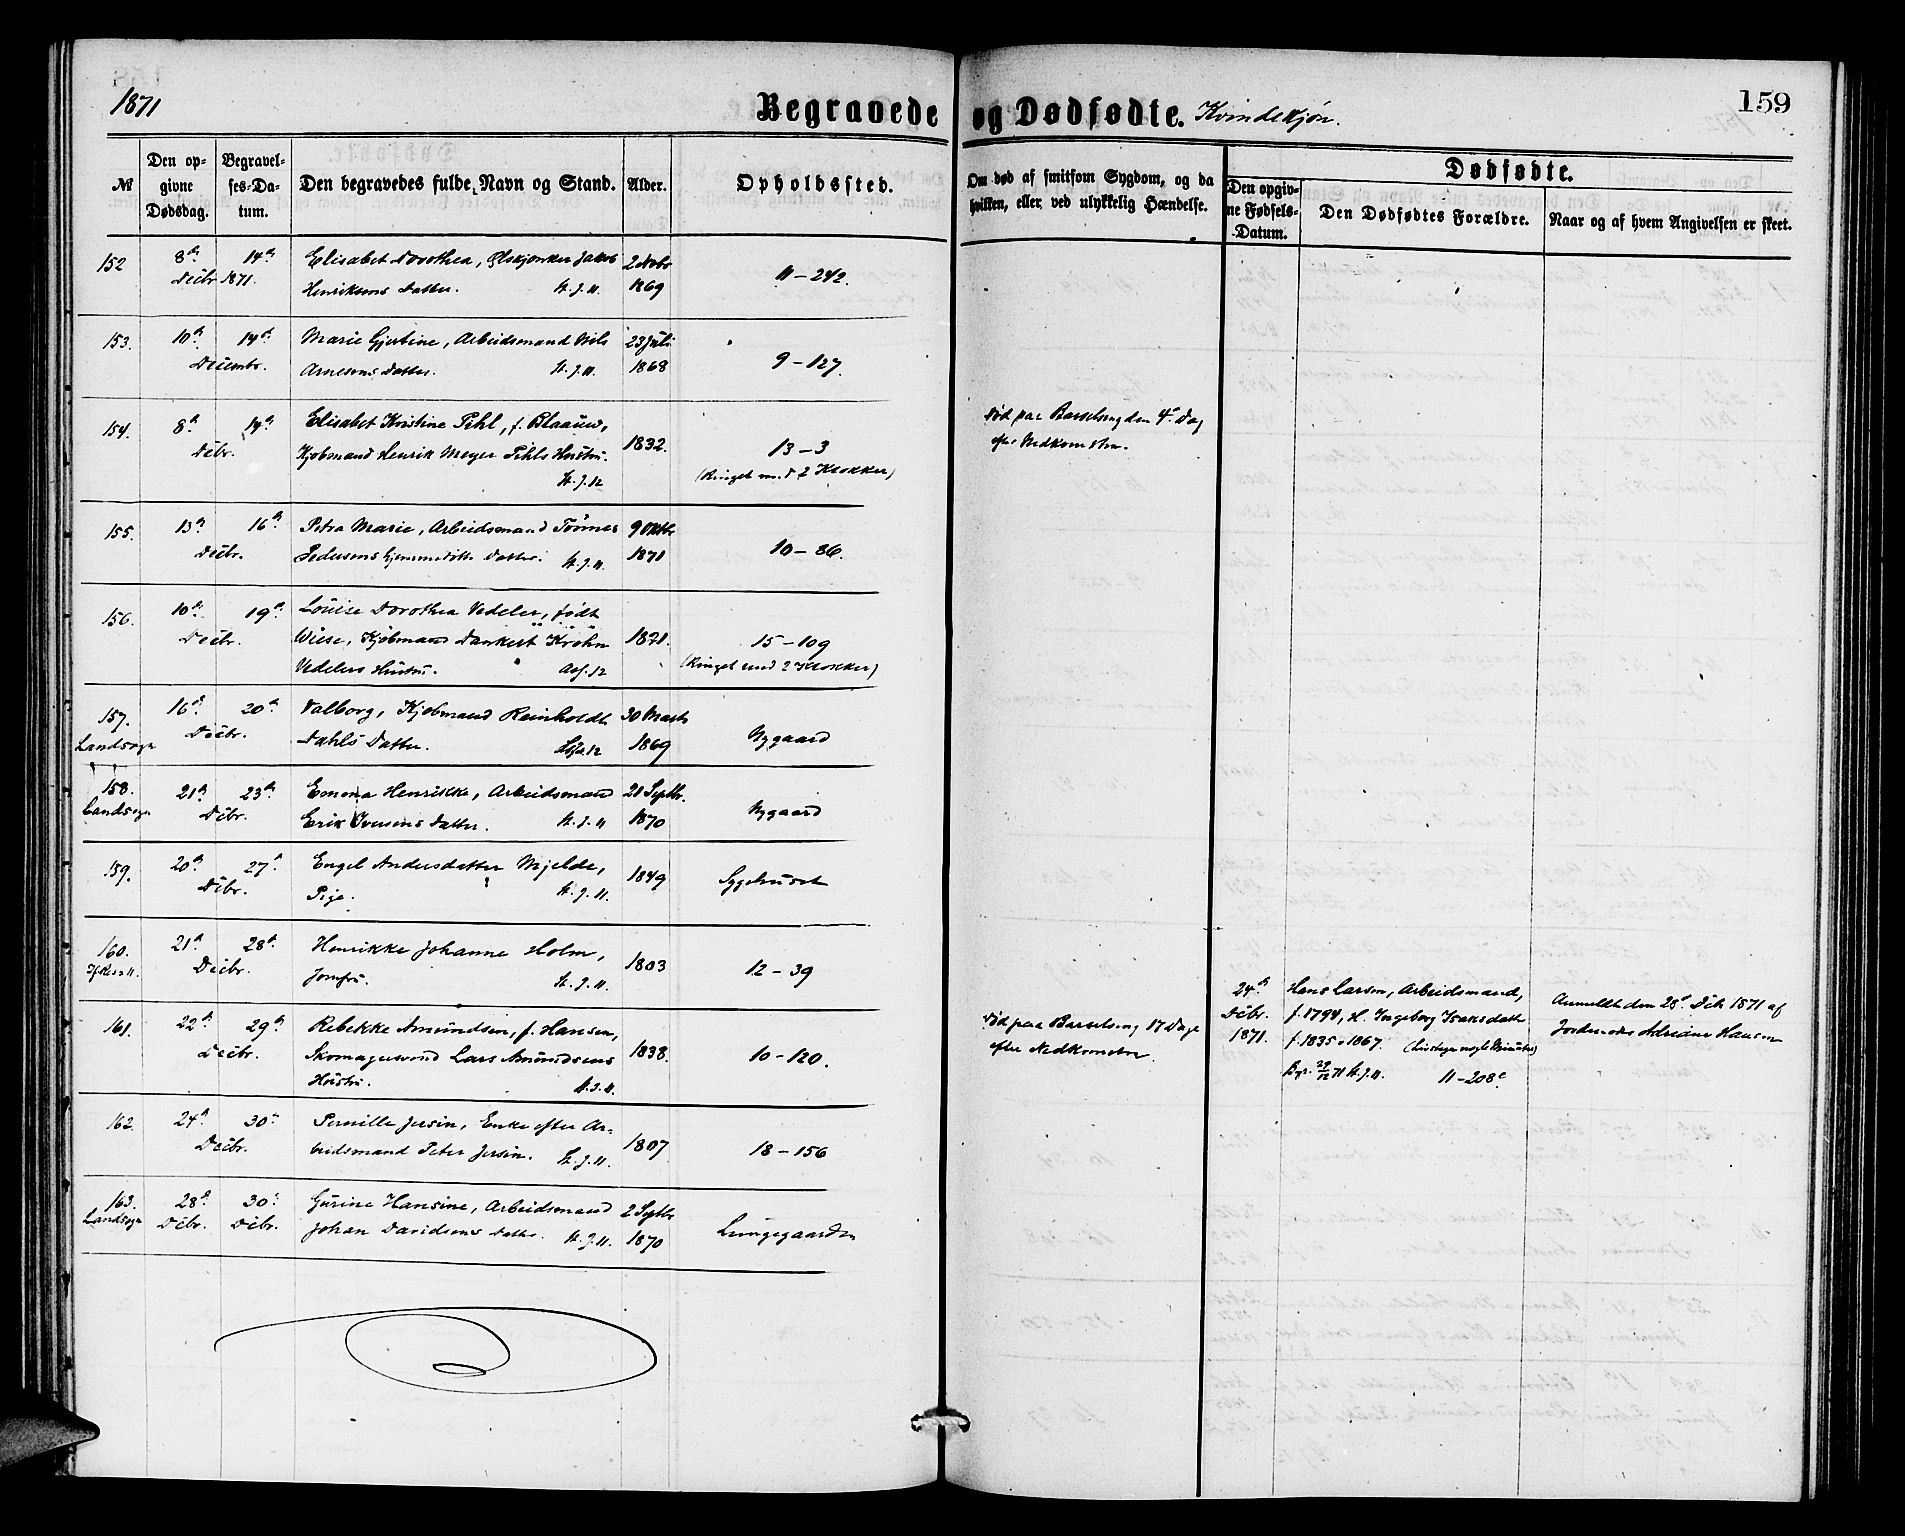 1871
Begravede og Dødfødte. Kvindekjøn.
159
№
Den opgivne Dødsdag.
Begravelses-Datum.
Den begravedes fulde Navn og Stand.
Alder.
Opholdssted.
Om død af smitsom Sygdom, og da
hvilken, eller ved ulykkelig Hændelse.
Dødfødte.
Den opgivne Fødsels-Datum.
Den Dødfødtes Forældre.
Naar og af hvem Angivelsen er skeet.
152 8de 14de Elisabet Dorothea, Jakob 2 Novbr
Decbr 1871. Henriksens Datter. St. J. 11. 1869 11-242.
153. 10de 14de Marie Gjertine, Arbeidsmand Nils 23 Juli
Decembr. Arnesens Datter. St. J. 11. 1868 9-127.
154. 8de 14de Elisabet Kristine Pihl, f. Blaauw, Død paa Barselseng den 4de Dag
Decbr. Kjøbmand Henrik Meyer Pihls Hustru. 1832. 13-3 efter Nedkomsten.
St. J. 12 (Ringet med 2 Klokker)
155. 13de 16de Petra Marie, Arbeidsmand Tørrres 9 Oktbr
Decbr. Pedersens hjemmedøbte Datter. St. J. 11. 1871 10-86.
156. 10de 19de Louise Dorothea Vedeler, født
Decbr. Wiese, Kjøbmand Dankert Krohn 1821. 15-109
Vedelers Hustru. Ass. 12 (Ringet med 2 Klokker)
157. 16de 20de Valborg, Kjøbmand Reinholdt 30 Marts
Landsogn Decbr. Dahls Datter. 1869 Nygaard
158. 21de 23de Emma Henrikke, Arbeidsmand 21 Septbr.
Landsogn Decbr. Erik Iversens Datter. St. J. 11 1870 Nygaard
159. 20de 27de Engel Andersdatter Mjelde, 1849 Sygehuset
Decbr. Pige. St. J. 11.
160. 21de 28de Henrikke Johanne Holm, 1803 12-39
Decbr. Jomfru. St. J. 11.
24de Hans Larsen, Arbeidsmand, Anmeldt den 28de Decb 1871 af
Decbr. f. 1794, H. Ingeborg Isaksdatter Jordemoder Adriane Hansen
1871. f. 1835 v. 1867. (Levede nogle Minutter)
Bgr. 29/12 71 St. J. 11. 11-208c
161. 22de 29de Rebekke Amundsen, f. Hansen, Død paa Barselseng 17 Dage
Decbr. Skomagersvend Lars Amundsens 1838. 10-120. efter Nedkomsten.
Hustru. St. J. 11.
162. 24de 30te Pernille Jersin, Enke efter Ar-
Decbr. beidsmand Peter Jersin. St. J. 11. 1807 18-156
163. 28de 30te Gurine Hansine, Arbeidsmand 2 Septbr
Landsogn Decbr. Decbr. Johan Davidsens Datter. St. J. 11. 1870 Lungegaarden